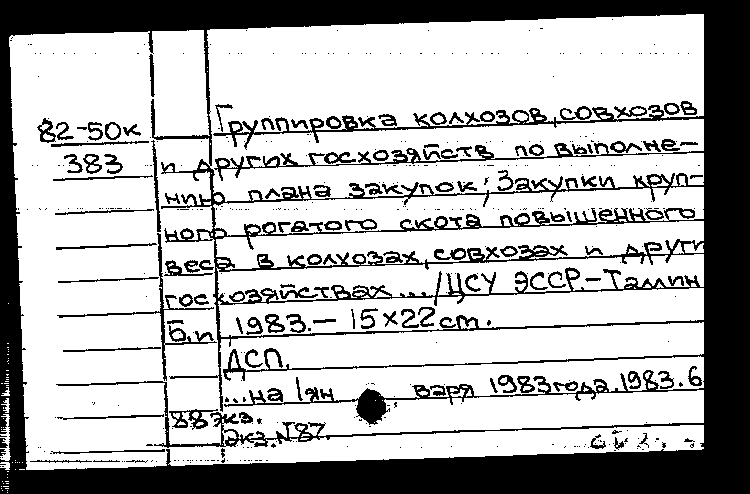 82-50к
Группировка колхозов, совхозов
383
и других госхозяйств по выполне-
нию плана закупок; Закупки круп-
ного рогатого скота повышенного
веса в колхозах, совхозах и други
госхозяйствах .../ЦСУ ЭССР.-Таллин
Б.и, 1983.- 15×22cm.
ДСП.
...на 1 ян варя 1983 года. 1983. 6
88 экз.
Экз.N87.